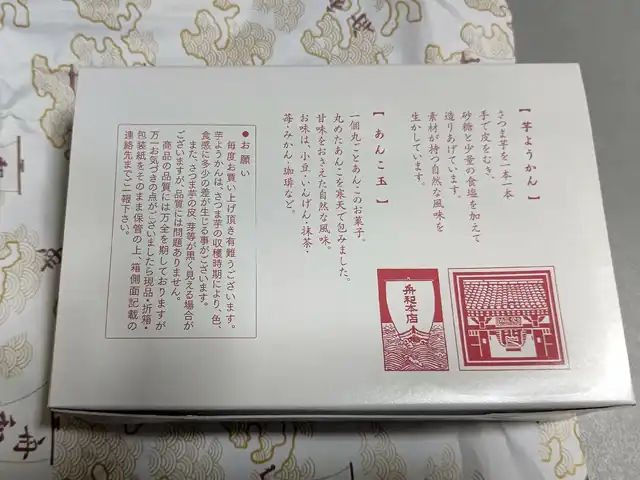 【 芋ようかん 】
さつま芋を一本一本
手で皮をむき、
砂糖と少量の食塩を加えて
造りあげています。
素材が持つ自然な風味を
生かしています。
【 あんこ玉 】
一個丸ごとあんこのお菓子。
丸めたあんこを寒天で包みました。
甘味をおさえた自然な風味。
お味は、小豆・いんげん・抹茶・
苺・みかん・珈琲など。
●お願い
毎度お買い上げ頂き有難うございます。
芋ようかんは、さつま芋の収穫時期により、色、
食感に多少の差が生じる事がございます。
また、さつま芋の皮、芽等が黒く見える場合が
ございますが、品質には問題ありません。
商品の品質には万全を期しておりますが
万一お気づきの点がございましたら現品・折箱・
包装紙をそのまま保管の上、箱側面記載の
連絡先までご一報下さい。
舟和本店